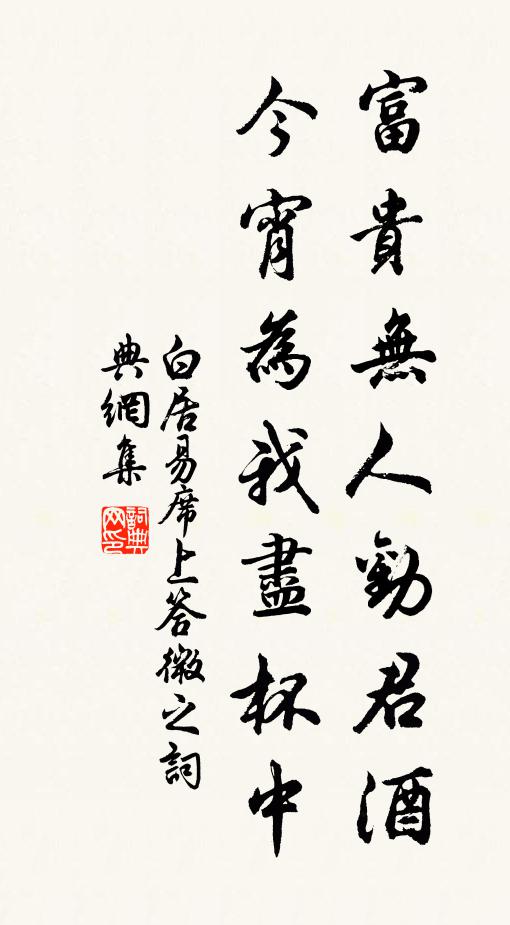 富貴無人勸君酒
今宵為我盡杯中
白居易席上答微之詞
典網集
詞典
网印